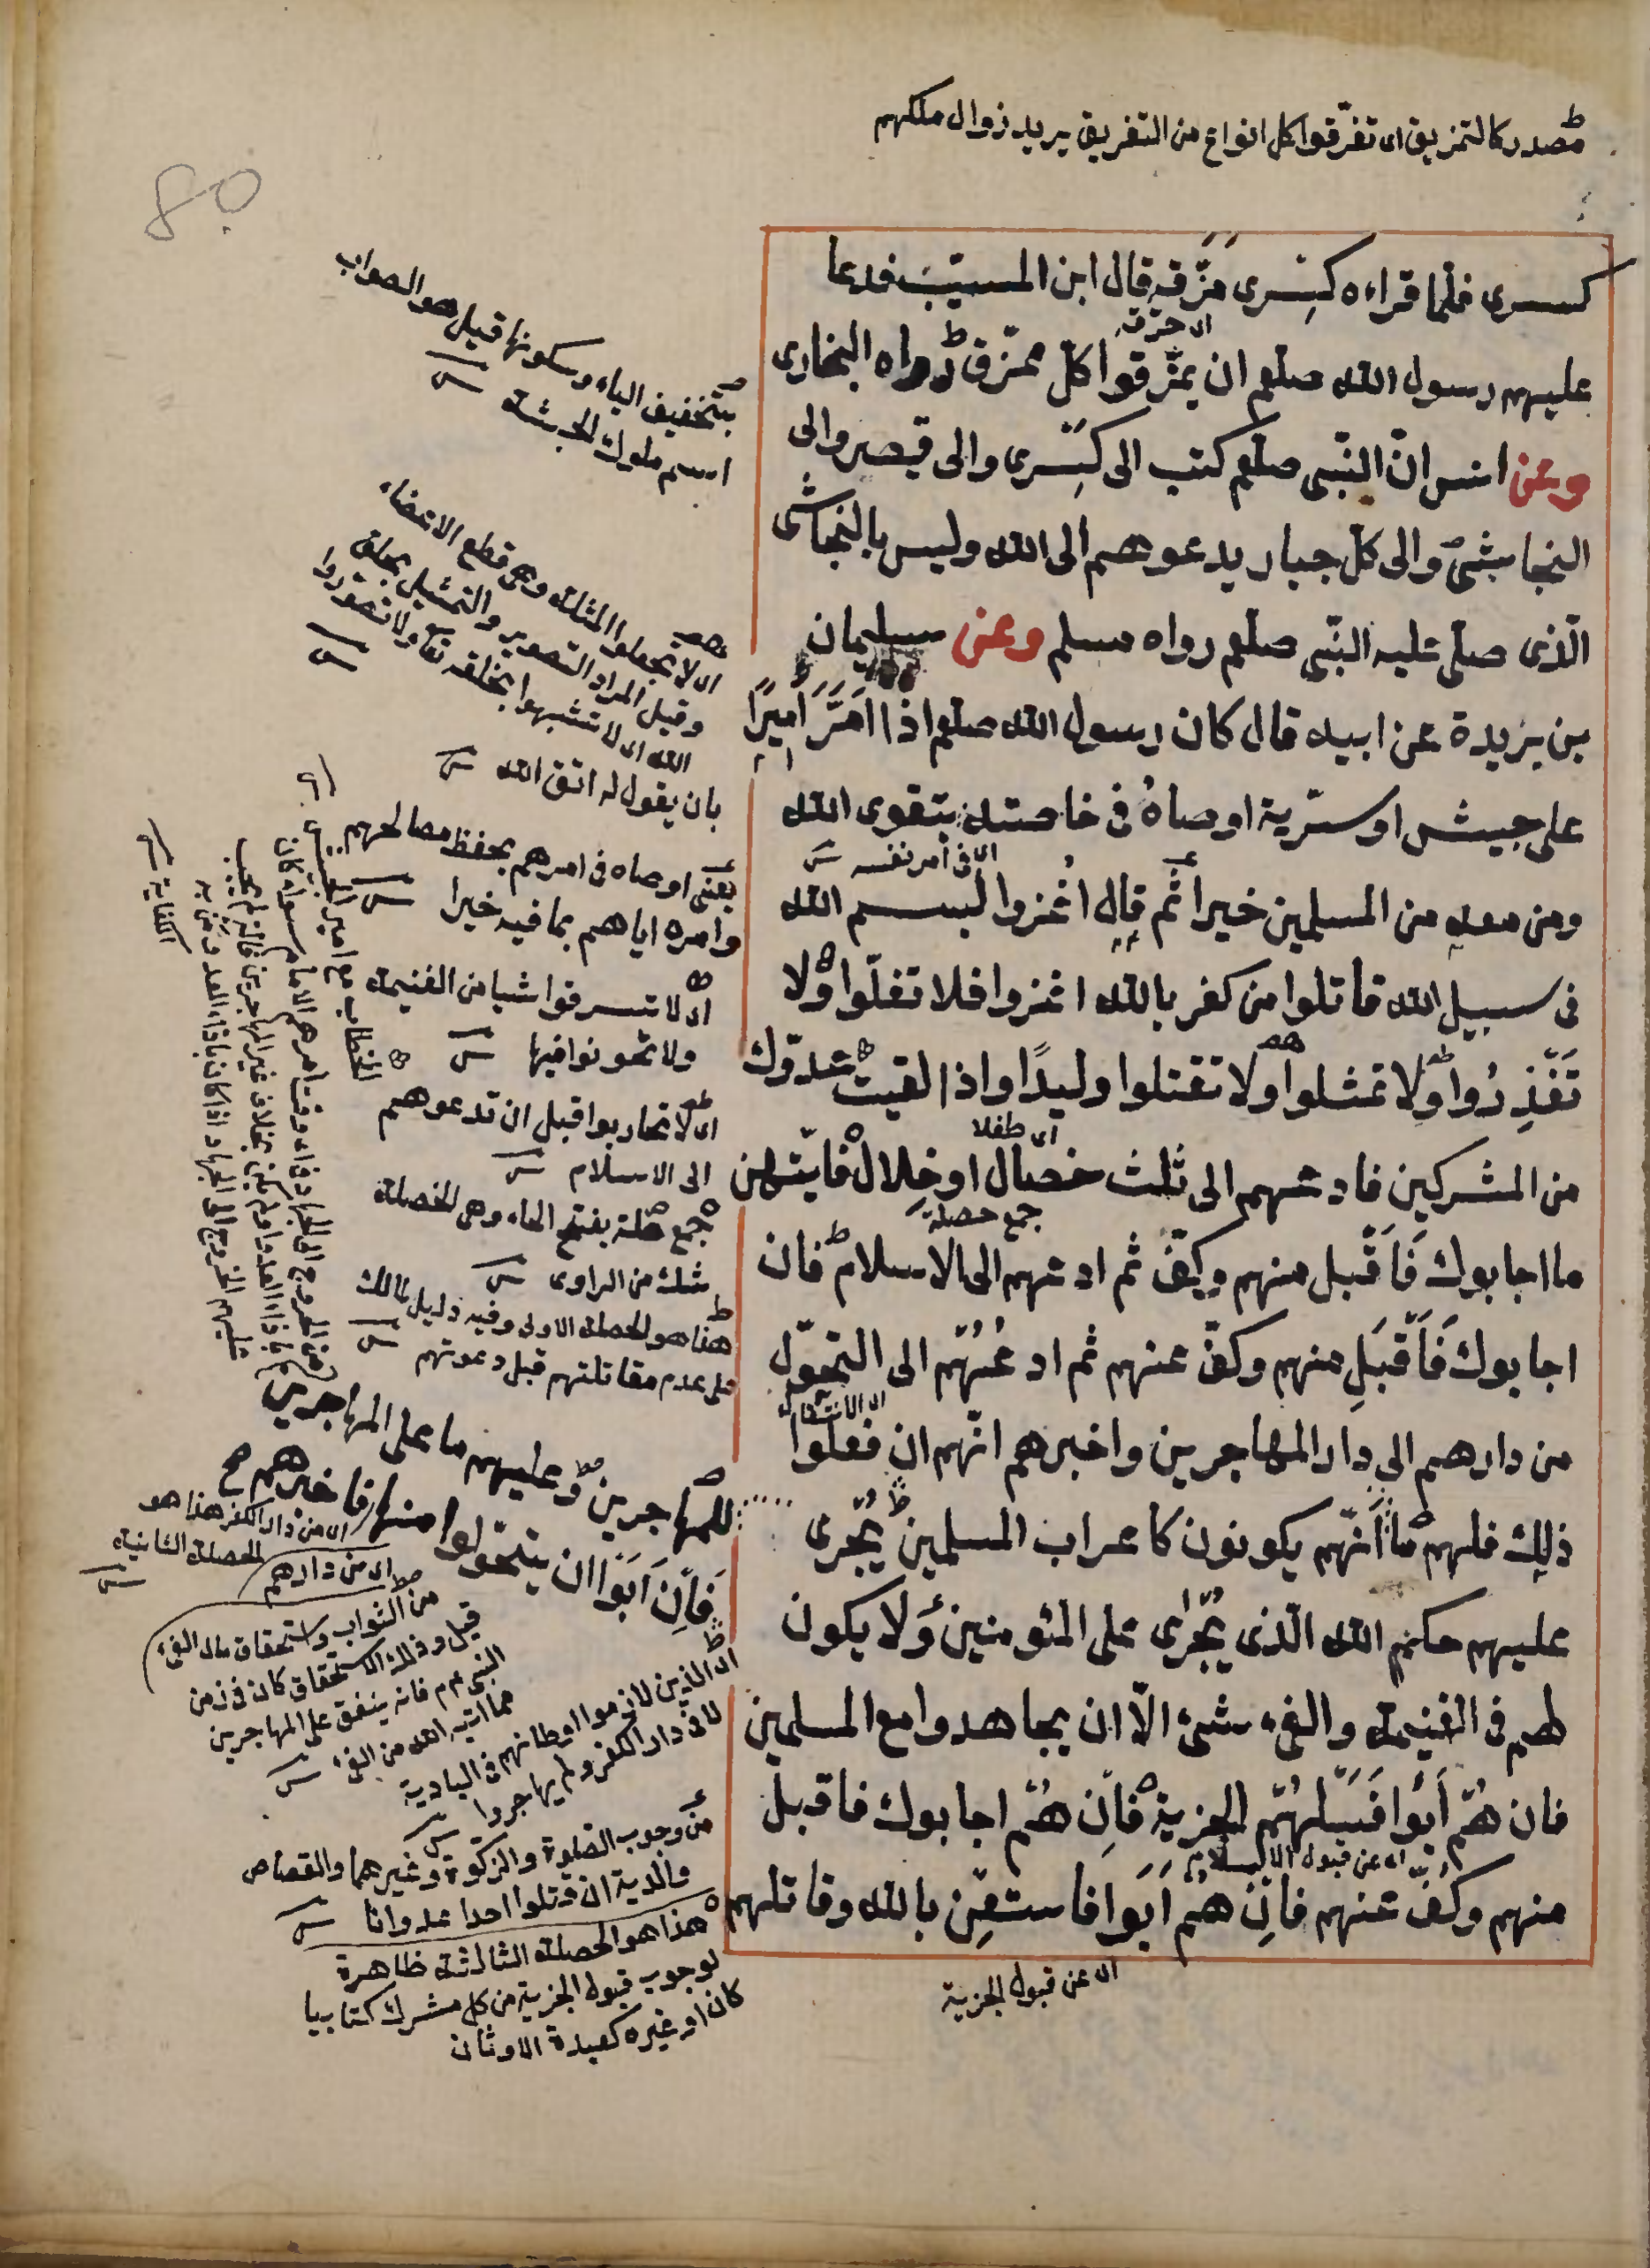 مصدر كالتمزيق اى تفرقوا كل انواع من التفريق يريد زوال ملكهم
80
كسرى فلما قراءه كِسْرى مَزَّقه قال ابن المسيّب فدعا
اى خرقه
عليهم رسول الله صلعم ان يمزّقوا كلّ ممزّق رواه البخارى
وعن انس انّ النّبى صلعم كتب الى كِسْرى والى قيصر والى
النجاشىّ والى كلّ جبار يدعوهم الى الله وليس بالنجاشى
الّذى صلّى عليه النّبى صلعم رواه مسلم وعن سليمان
بن بريدة عن ابيه قال كان رسول الله صلعم اذا اَمَّرَ اَمِيرًا
على جيش او سريّة اوصاهُ فى خاصته بتقوى الله
اى فى أمر نفسه
ومن معه من المسلمين خيرا ثُم قال اُغزوا بسم الله
فى سبيل الله قاتلوا من كفر بالله اغزوا فلا تغلّوا ولا
تَغْدِرُوا ولا تمثلوا ولا تقتلوا وليدًا واذا لقيت عدوّك
اى طفلا
من المشركين فادعهم الى ثلث خصال او خِلال فايّتهن
جمع خصلة
ما اجابوك فَاَقْبل منهم وكفّ ثم ادعهم الى الاسلام فان
اجابوك فَاَقْبَلِ منهم وكفّ عنهم ثم ادعُهُمْ الى التحوّل
اى الانتقال
من دارهم الى دار المهاجرين واخبرهم انّهم ان فعلوا
ذلك فلهم ما للمهاجرين وعليهم ما على المهاجرين
فَاِنْ اَبَوْا ان يتحوّلوا منها فاخبرهم
اَنّهم يكونون كاعراب المسلمين يُجْرى
عليهم حكم الله الّذى يُجْرٰى على المؤمنين ولا يكون
لهم فى الغنيمة والفىء شىء الّا ان يجاهدوا مع المسلمين
فان هُمْ اَبَوْا فَسَلْهُمُ الجزية فاِن هُمْ اجابوك فاقبل
اى عن قبول الاسلام
منهم وكُفّ عنهم فاِنْ هُمْ اَبَوْا فاستعِنْ بالله وقاتلهم
اى عن قبول الجزية
بتخفيف الياء وسكونها قيل هو الصواب
اسم ملوك الحبشة
اى لا تجعلوا المثلة وهى قطع الاعضاء
وقيل المراد التصوير والتمثيل بخلق
الله اى لا تشبهوا بخلقه تعالى ولا تصوروا
بان يقول له اتق الله
يعنى اوصاه فى امرهم بحفظ مصالحهم
وامره اياهم بما فيه خيرا
اى لا تسرقوا شيا من الغنيمة
ولا تخونوا فيها
اى لا تحاربوا قبل ان تدعوهم
الى الاسلام
جمع خلة بفتح الخاء وهى الخصلة
شك من الراوى
هذا هو الخصلة الاولى وفيه دليل لمالك
على عدم مقاتلتهم قبل دعوتهم
الخطاب مع امير الجيش
اى من دار الكفر هذا هو
الخصلة الثانية
اى من دارهم
من الثواب واستحقاق مال الفىء
قيل وذلك الاستحقاق كان فى زمن
النبى عم فانه ينفق على المهاجرين
مما اتيه الله من الفىء
اى الذين لازموا اوطانهم فى البادية
لا فى دار الكفر ولم يهاجروا
من وجوب الصلوة والزكوة وغيرهما والقصاص
والدية ان قتلوا احدا عدوانا
هذا هو الخصلة الثالثة ظاهرة
لوجوب قبول الجزية من كل مشرك كتابيا
كان او غيره كعبدة الاوثان